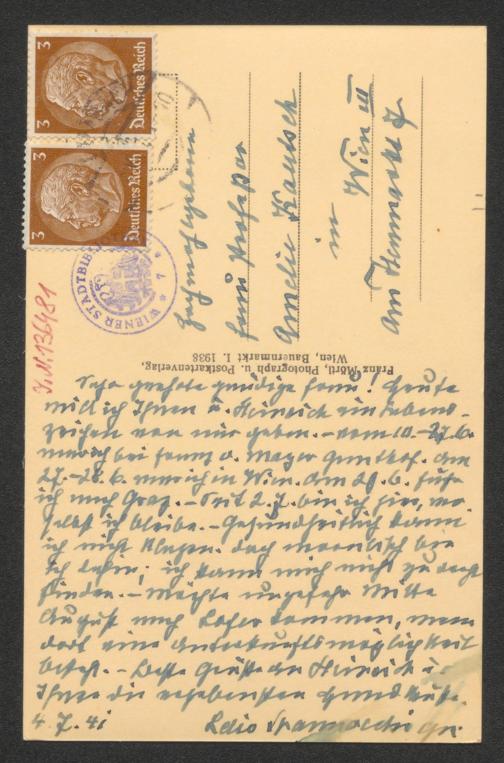 3
Deutsches Reich
3
Deutsches Reich
WIENER STADTBIB
* 7 *
J.N. 136481
Hochwohlgeboren
Frau Professor
Amelie Kautsch
in
Wien III
Am Heumarkt 7
Franz Mörtl, Photograph u. Postkartenverlag,
Wien, Bauernmarkt 1. 1938
Sehr geehrte gnädige Frau! Heute
will ich Ihnen u. Heinrich ein Lebens-
zeichen von mir geben. - vom 10.-27.6.
war ich bei Franz v. Mayer Am
27.-28.6. war ich in Wien. Am 28.6. fuhr
ich nach Graz. - Seit 2.7. bin ich hier, wo-
selbst ich bleibe. - Gesundheitlich kann
ich nicht klagen. doch moralisch bin
ich ; ich kann mich nicht zu recht
finden. - Möchte ungefähr Mitte
August nach Lofer kommen, wenn
dort eine Unterkunftsmöglichkeit
besteht. - Beste Grüße an Heinrich u.
Ihnen die ergebensten Handküsse.
4.7.41